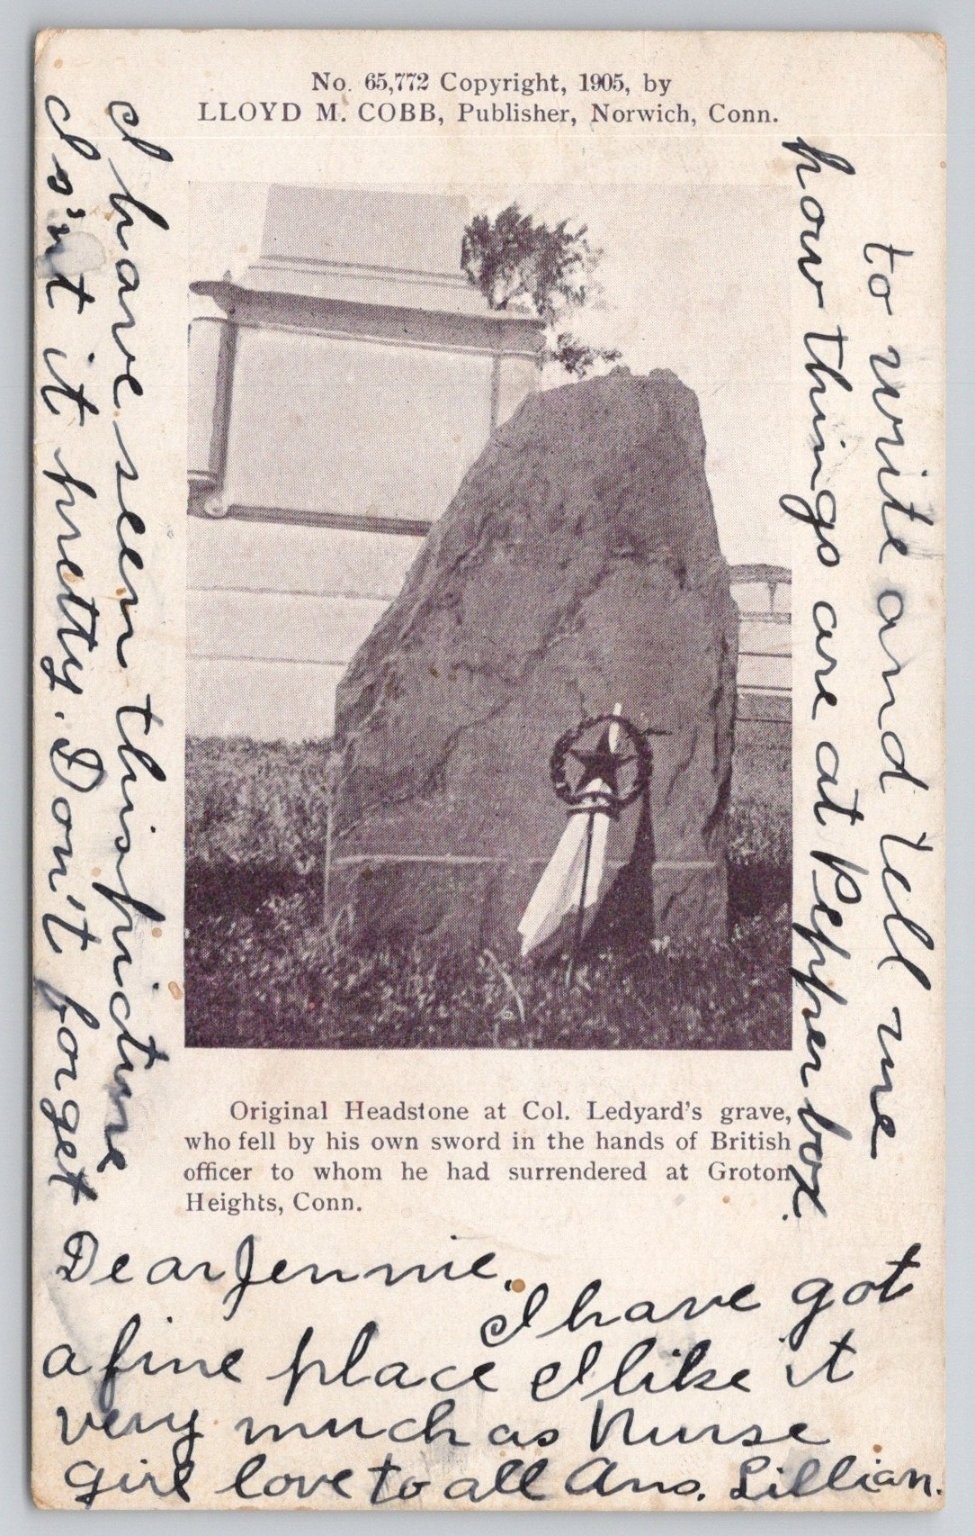 No. 65,772 Copyright, 1905, by
LLOYD M. COBB, Publisher, Norwich, Conn.
Original Headstone at Col. Ledyard's grave,
who fell by his own sword in the hands of British
officer to whom he had surrendered at Groton
Heights, Conn.
Dear Jennie.
I have got
a fine place I like it
very much as Nurse
girl love to all Ans. Lillian.
I have seen this picture
Is'nt it pretty. Don't forget
to write and tell me
how things are at Pepper box.